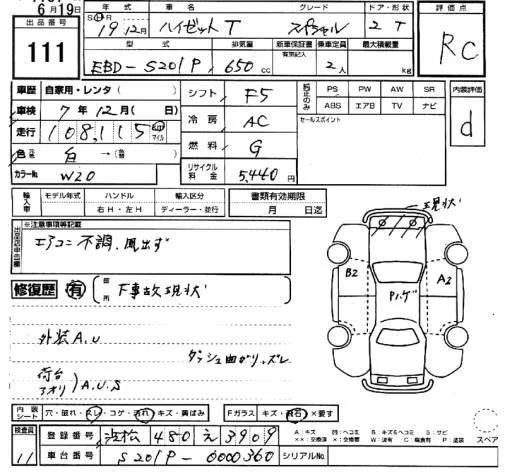 6月19日
出品番号 111
年式 車名 グレード ドア・形状
19年12月 ハイゼットT スペシャル 2 T
評価点 RC
型式 排気量 新車保証書 有無記入 乗車定員 最大積載量
EBD-S201P 650 cc 2人 kg
車歴 自家用・レンタ( )
車検 7年12月( 日)
走行 108,115 km マイル
色 元色 白 →(色替 )
カラーNo. W20
シフト F5
冷房 AC
燃料 G
リサイクル料金 5,440円
純正のみ PS PW AW SR
ABS エアB TV ナビ
セールスポイント
内装評価 d
輸入車 モデル年式 ハンドル 輸入区分
年 右H・左H ディーラー・並行
書類有効期限
月 日迄
出品店申告欄 ※注意事項等記載
エアコン不調、風出ず
現状
修復歴 有 箇所 F事故現状
B2 Pハゲ A2
外装A,U
ダッシュ曲がり、ズレ
荷台 アオリ)A,U,S
内装シート 穴・破れ・スレ・コゲ・汚れ・キズ・黄ばみ
Fガラス キズ・飛石・×要す
検査員 11
登録番号 浜松 480 え 3909
車台番号 S201P-6000360 シリアルNo.
A:キズ U:ヘコミ B:キズ&ヘコミ S:サビ
××:交換済 ×:要交換 W:波有 C:腐食有 P:塗装
スペア